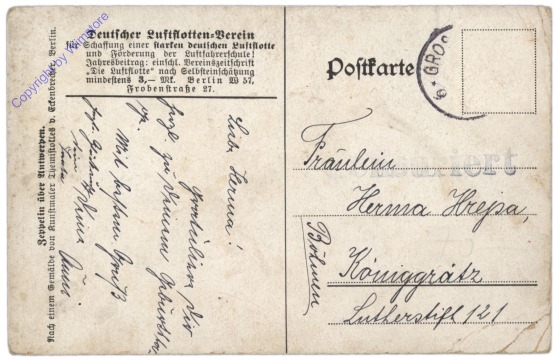 Deutscher Luftflotten-Verein
für Schaffung einer starken deutschen Luftflotte
und Förderung der Luftfahrerschule!
Jahresbeitrag: einschl. Vereinszeitschrift
„Die Luftflotte" nach Selbsteinschätzung
mindestens 3,— Mk. Berlin W 57,
Frobenstraße 27.
Zeppelin über Antwerpen.
Nach einem Gemälde von Kunstmaler Themistokles v. Eckenbrecher, Berlin.
Copyright by Wimstore
Liebe Herma!
Gratuliere Dir
herzl. zu Deinem Geburtstag
Mit bestem Gruß
Deine
Postkarte
GROS
Fräulein
Herma Hrejsa,
Königgrätz
Lutherstift 121
Böhmen